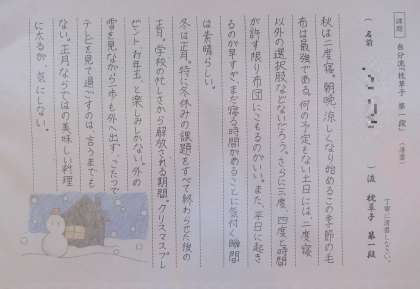 課題 自分流「枕草子 第一段」(清書)
丁寧に清書しなさい。
( 名前 ) 流 枕草子 第一段
秋は二度寝。朝晩、涼しくなり始めるこの季節の毛
布は最強である。何の予定もない土日には、二度寝
以外の選択肢などないだろう。さらに三度、四度と時間
が許す限り布団にこもるのがいい。また、平日に起き
るのが早すぎ、まだ寝る時間があることに気付く瞬間
は素晴らしい。
冬は正月。特に冬休みの課題をすべて終わらせた後の
正月。学校の忙しさから解放される期間。クリスマスプレ
ゼント、お年玉、と楽しみしかない。外の
雪を見ながら一歩も外へ出ず、こたつで
テレビを見て過ごすのは、言うまでも
ない。正月ならではの美味しい料理
に太るが、気にしない。